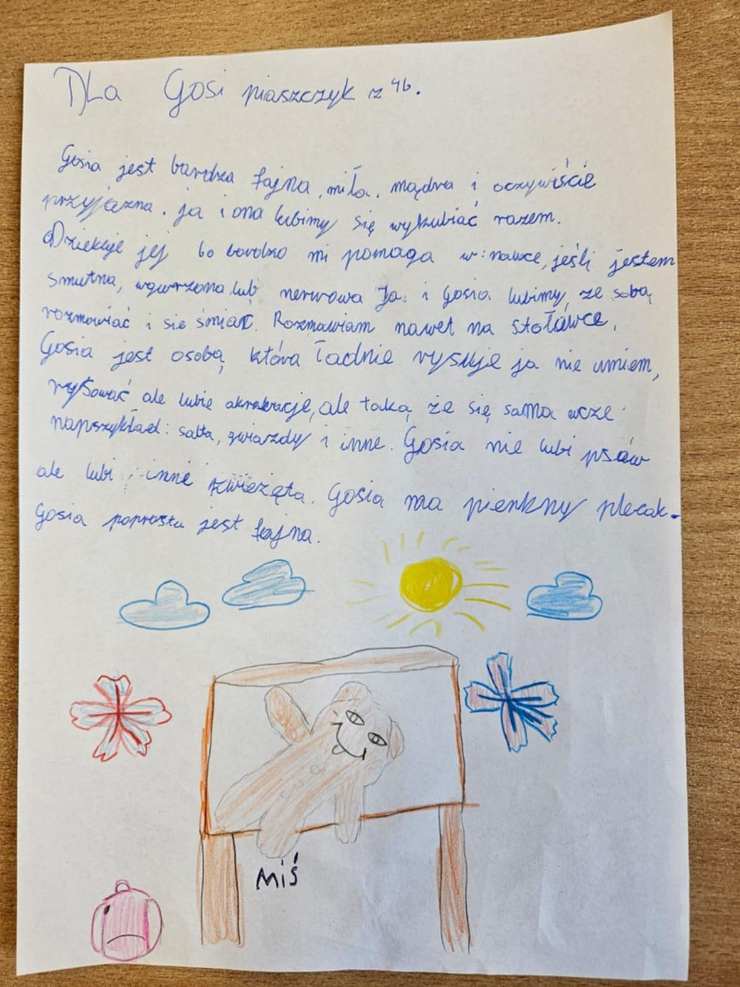 DLa Gosi piaszczyk z 4b.
Gosia jest bardza fajna, miła, mądra i oczywiście
przyjezna. ja i ona lubimy się wykubiać razem.
Dziekuje jej bo bardzo mi pomaga w nauce, jeśli jestem
smutna, wgurzona lub nerwowa Ja i Gosia lubimy, ze sobą
rozmowiać i sie śmiać. Rozmawiam nawet na stoławce,
Gosia jest osobą, która ładnie rysuje ja nie umiem,
rysować ale lubie akrobacje, ale taką, że się sama ucze
napszykład: salta, gwiazdy i inne. Gosia nie lubi psów
ale lubi inne zwieżęta. Gosia ma pienkny plecak.
Gosia poprostu jest fajna.
Miś